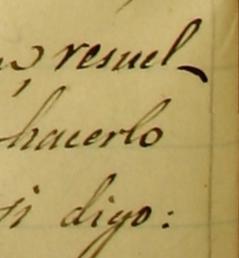 resuel_
hacerlo
digo: